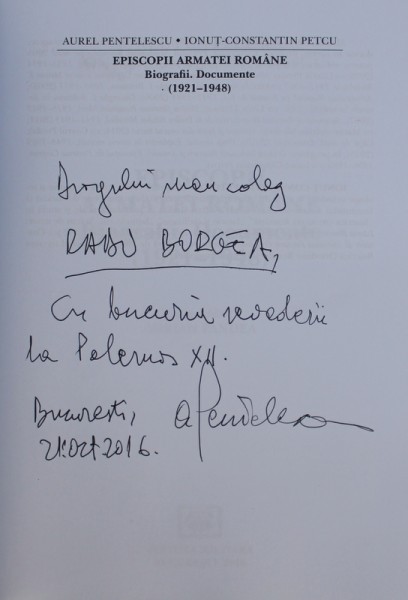 AUREL PENTELESCU • IONUȚ-CONSTANTIN PETCU
EPISCOPII ARMATEI ROMÂNE
Biografii. Documente
(1921–1948)
Dragului meu coleg
RADU BORCEA,
Cu bucuria revederii
la Polemos XII.
București,
21.oct.2016.